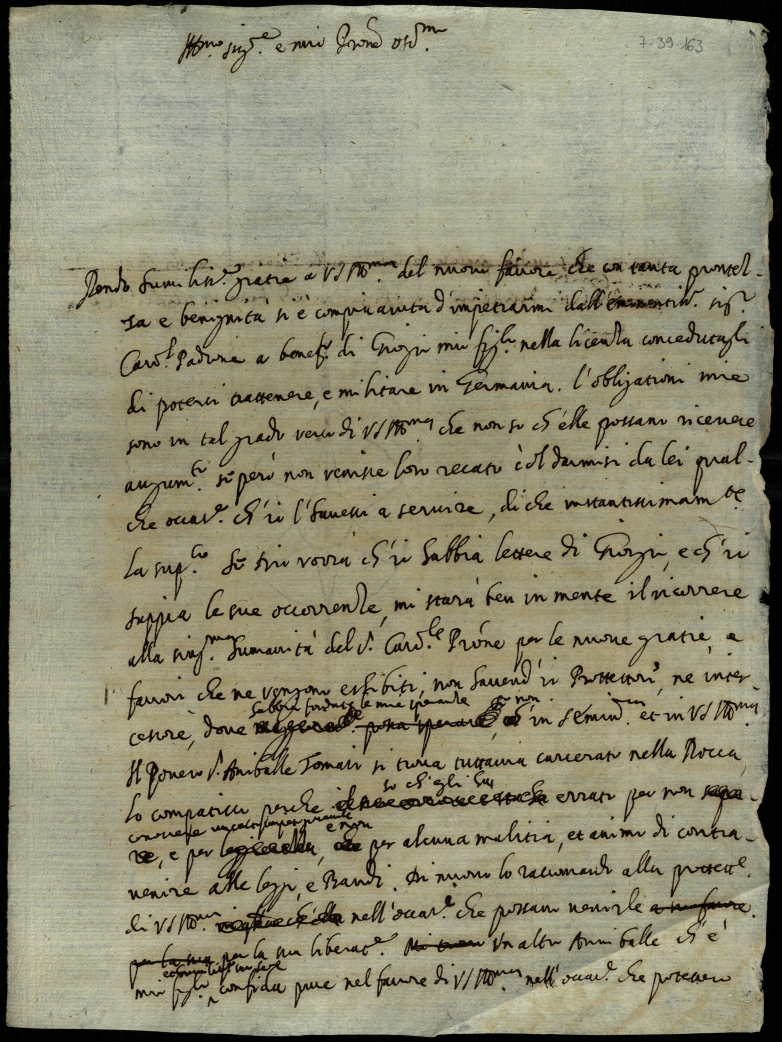 Ill.mo sig.re e mio Prone oss.mo
7-39-163
Rendo humiliss.e gratie a VS Ill.ma del nuovo favore, che con tanta prontez-
za e benignità si è compiaciuta d'impetrarmi dall'eminentiss.o sig.r
Card.l Padrone a benef.o di Giorgio mio figl.o nella licenza concedutagli
di potersi trattenere, e militare in Germania. l'obligationi mie
sono in tal grado verso di VS Ill.ma che non so ch'elle possano ricevere
augum.to se però non venisse loro recato col darmisi da lei qual-
che occas.e ch'io l'havessi a servire, di che instantissimam.te
la sup.co Se Dio vorrà ch'io habbia lettere di Giorgio, e ch'io
sappia le sue occorrenze, mi starà ben in mente il ricorrere
alla humanità del S. Card.le Prone per le nuove gratie, e
favori che ne vengono essibiti, non havend'io Protettori, ne inter-
cessore, dove
habbia fondate le mie speranze se non
in S. Emin.za et in VS Ill.ma
Il Povero S. Aniballe Tomasi si trova tuttavia carcerato nella Rocca,
so ch'egli ha
lo compatisco perche errato per non
e non
, e per per alcuna malitia, et animo di contra-
venire alle leggi, e Bandi. Di nuovo lo raccomando alla protett.e
di VS Ill.ma nell'occas.e che possano venirle a suo favore
per la sua per la sua liberat.e Un altro Anniballe ch'è
mio figl.o confida pure nel favore di VS Ill.ma nell'occas.e che potessero